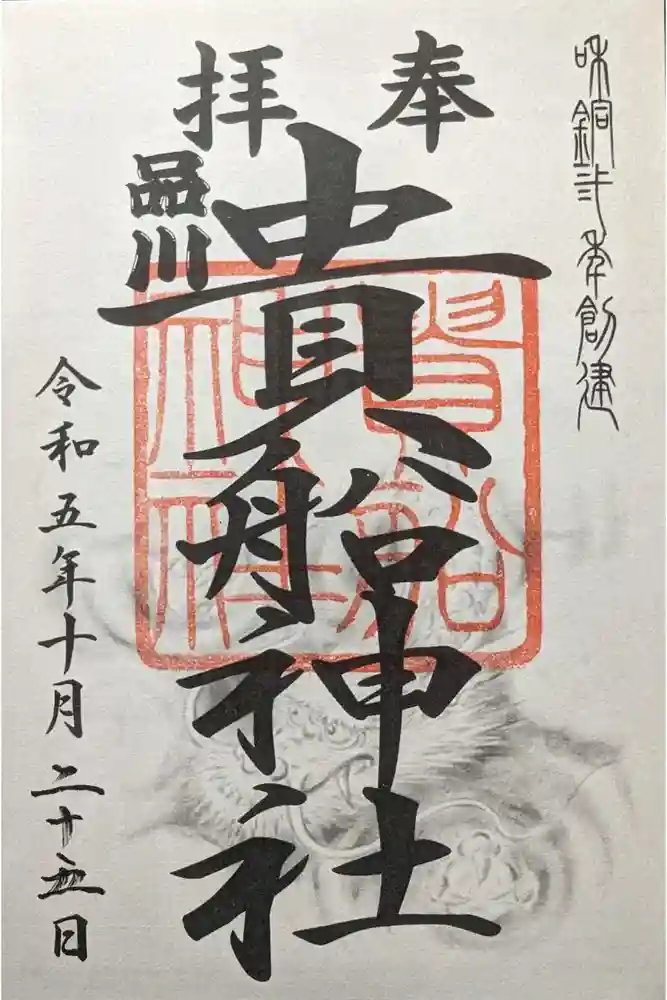 咊銅弍年創建
奉拝
品川
貴船神社
貴船
神社
令和五年十月二十五日